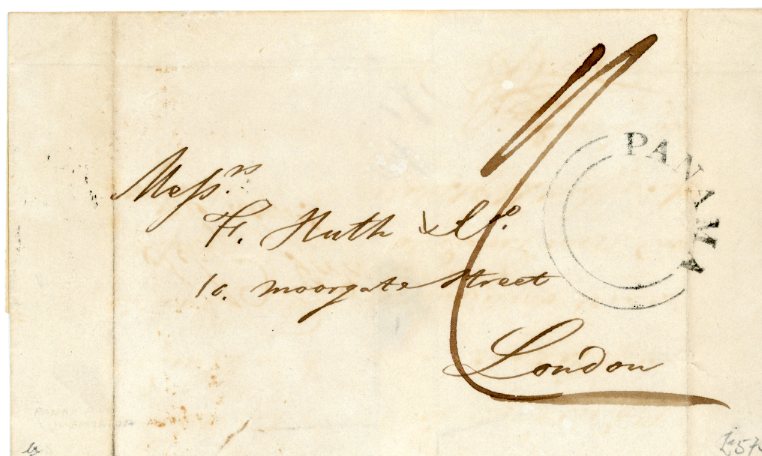 PANAMA
Messrs
F. Huth & Co.
10. Moorgate Street
London